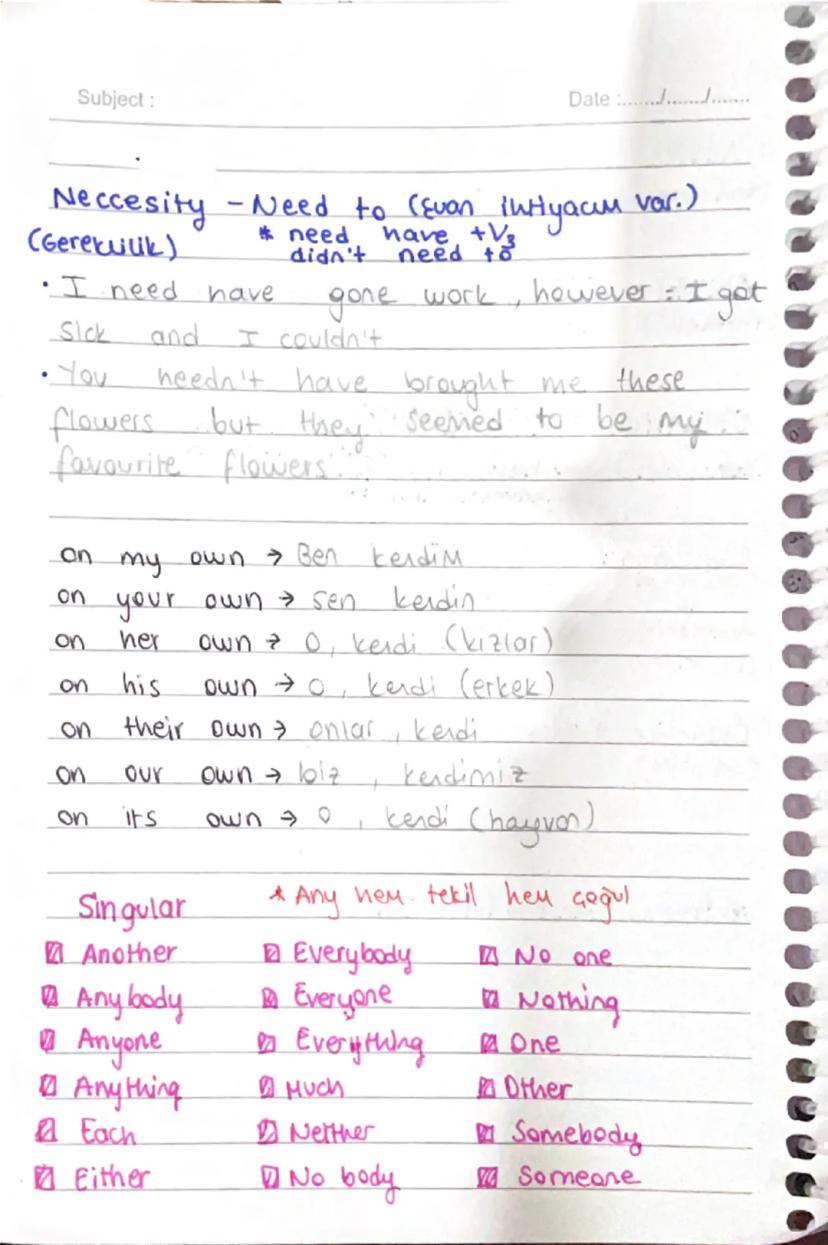 Subject :
Date :......./......./.......
Neccesity - Need to ( ihtiyacım var.)
(Gereklilik) * need have +V3
didn't need to
• I need have gone work, however : I got
sick and I couldn't
• You needn't have brought me these
flowers but they seemed to be my
favourite flowers.
on my own → Ben kendim
on your own → sen kendin
on her own → O, kendi (kızlar)
on his own → o, kendi (erkek)
on their own → onlar, kendi
on our own → biz, kendimiz
on its own → o, kendi (hayvan)
Singular * Any hem tekil hem çoğul
Another Everybody No one
Anybody Everyone Nothing
Anyone Everything One
Anything Much Other
Each Neither Somebody
Either No body Someone